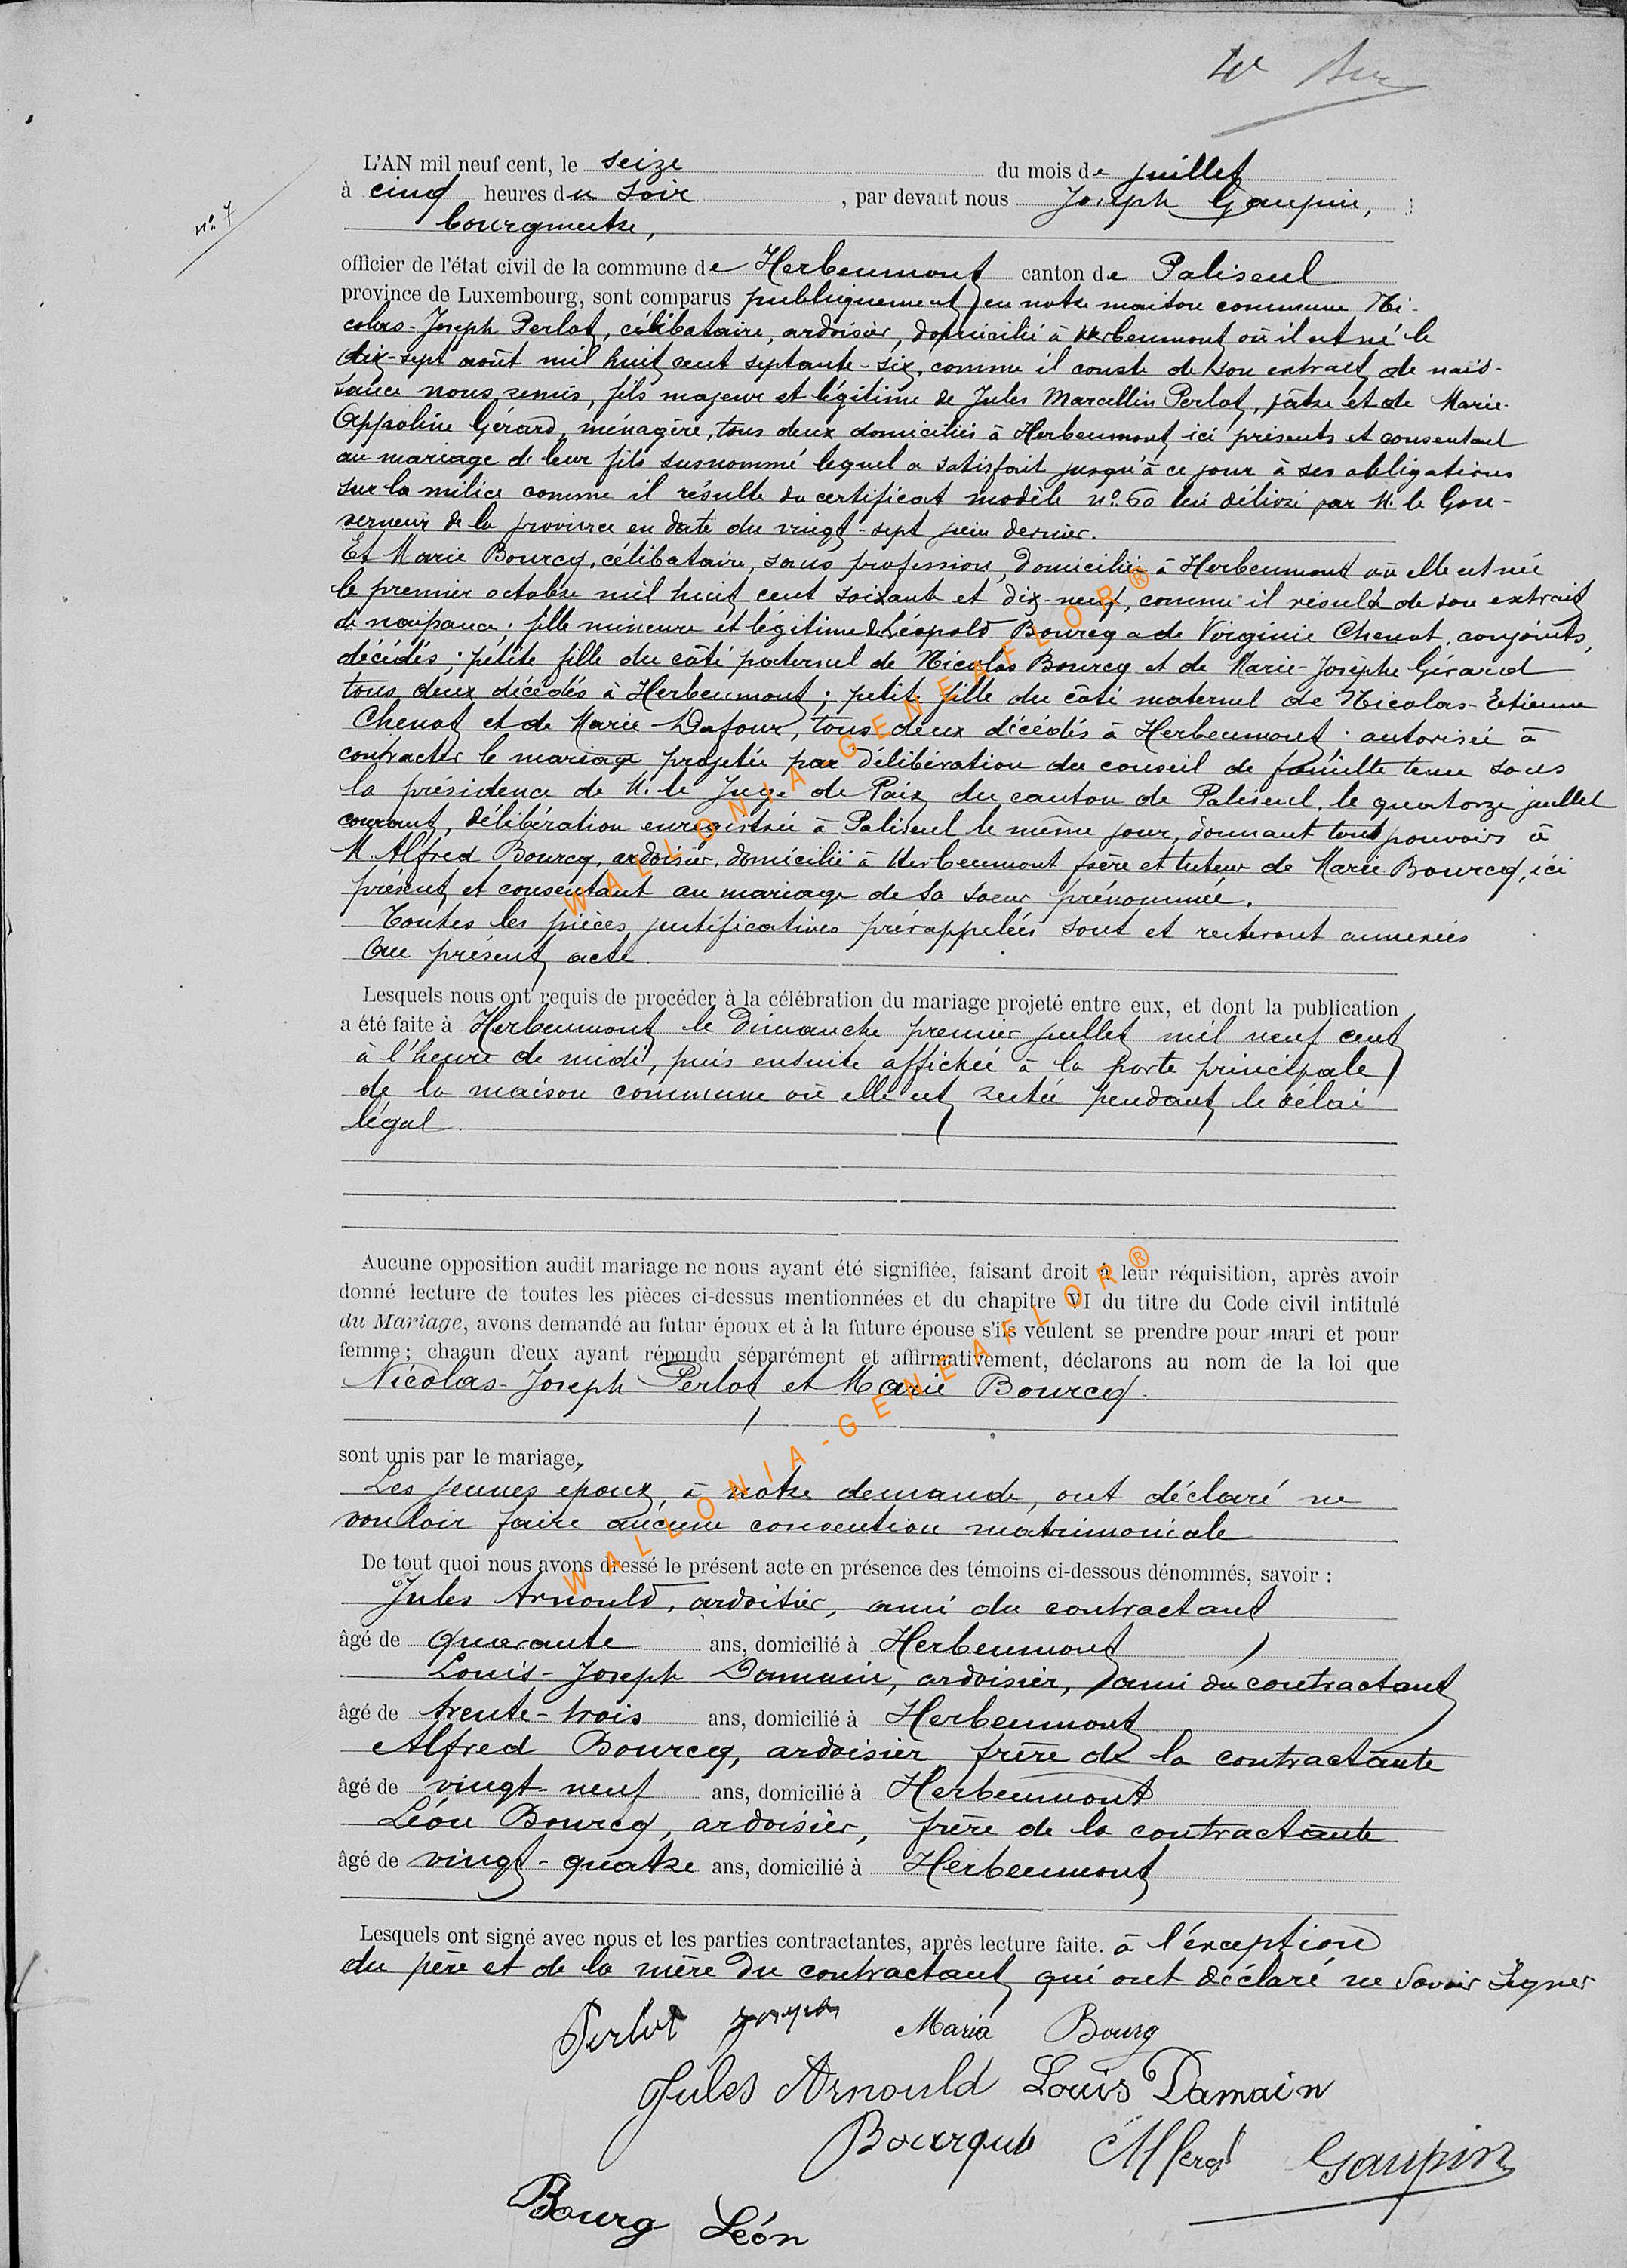 4e
N° 7
L'AN mil neuf cent, le seize du mois de juillet
à cinq heures du soir, par devant nous Joseph Gaupin,
bourgmestre,
officier de l'état civil de la commune de Herbeumont canton de Paliseul
province de Luxembourg, sont comparus publiquement en notre maison commune Ni-
colas-Joseph Perlot, célibataire, ardoisier, domicilié à Herbeumont où il est né le
dix-sept août mil huit cent septante-six, comme il conste de son extrait de nais-
sance nous remis, fils majeur et légitime de Jules Marcellin Perlot, pâtre et de Marie-
Appoline Gérard, ménagère, tous deux domiciliés à Herbeumont ici présents et consentant
au mariage de leur fils susnommé lequel a satisfait jusqu'à ce jour à ses obligations
sur la milice comme il résulte du certificat modèle n° 60 lui délivré par M. le Gou-
verneur de la province en date du vingt-sept juin dernier.
Et Marie Bourcq, célibataire, sans profession, domiciliée à Herbeumont où elle est née
le premier octobre mil huit cent soixante et dix-neuf, comme il résulte de son extrait
de naissance; fille mineure et légitime de Léopold Bourcq et de Virginie Chenot, conjoints,
décédés; petite fille du côté paternel de Nicolas Bourcq et de Marie-Josèphe Gérard
tous deux décédés à Herbeumont; petite fille du côté maternel de Nicolas-Etienne
Chenot et de Marie Dufour, tous deux décédés à Herbeumont; autorisée à
contracter le mariage projetée par délibération du conseil de famille tenu sous
la présidence de M. le Juge de Paix du canton de Paliseul, le quatorze juillet
courant, délibération enregistrée à Paliseul le même jour, donnant tous pouvoirs à
M. Alfred Bourcq, ardoisier, domicilié à Herbeumont frère et tuteur de Marie Bourcq, ici
présent et consentant au mariage de sa soeur prénommée.
Toutes les pièces justificatives prérappelées sont et resteront annexées
au présent acte.
Lesquels nous ont requis de procéder à la célébration du mariage projeté entre eux, et dont la publication
a été faite à Herbeumont le Dimanche premier juillet mil neuf cent
à l'heure de midi, puis ensuite affichée à la porte principale
de la maison commune où elle est restée pendant le délai
légal
Aucune opposition audit mariage ne nous ayant été signifiée, faisant droit à leur réquisition, après avoir
donné lecture de toutes les pièces ci-dessus mentionnées et du chapitre VI du titre du Code civil intitulé
du Mariage, avons demandé au futur époux et à la future épouse s'ils veulent se prendre pour mari et pour
femme; chacun d'eux ayant répondu séparément et affirmativement, déclarons au nom de la loi que
Nicolas-Joseph Perlot et Marie Bourcq.
sont unis par le mariage,
Les jeunes époux, à notre demande, ont déclaré ne
vouloir faire aucune convention matrimoniale
De tout quoi nous avons dressé le présent acte en présence des témoins ci-dessous dénommés, savoir :
Jules Arnould, ardoisier, ami du contractant
âgé de quarante ans, domicilié à Herbeumont
Louis-Joseph Damain, ardoisier, ami du contractant
âgé de trente-trois ans, domicilié à Herbeumont
Alfred Bourcq, ardoisier frère de la contractante
âgé de vingt-neuf ans, domicilié à Herbeumont
Léon Bourcq, ardoisier, frère de la contractante
âgé de vingt-quatre ans, domicilié à Herbeumont
Lesquels ont signé avec nous et les parties contractantes, après lecture faite. à l'exception
du père et de la mère du contractant qui ont déclaré ne savoir signer
Perlot Joseph Maria Bourg
Jules Arnould Louis Damain
Bourque Alfred Gaupin
Bourg Léon
WALLONIA-GENEAFLOR®
WALLONIA-GENEAFLOR®